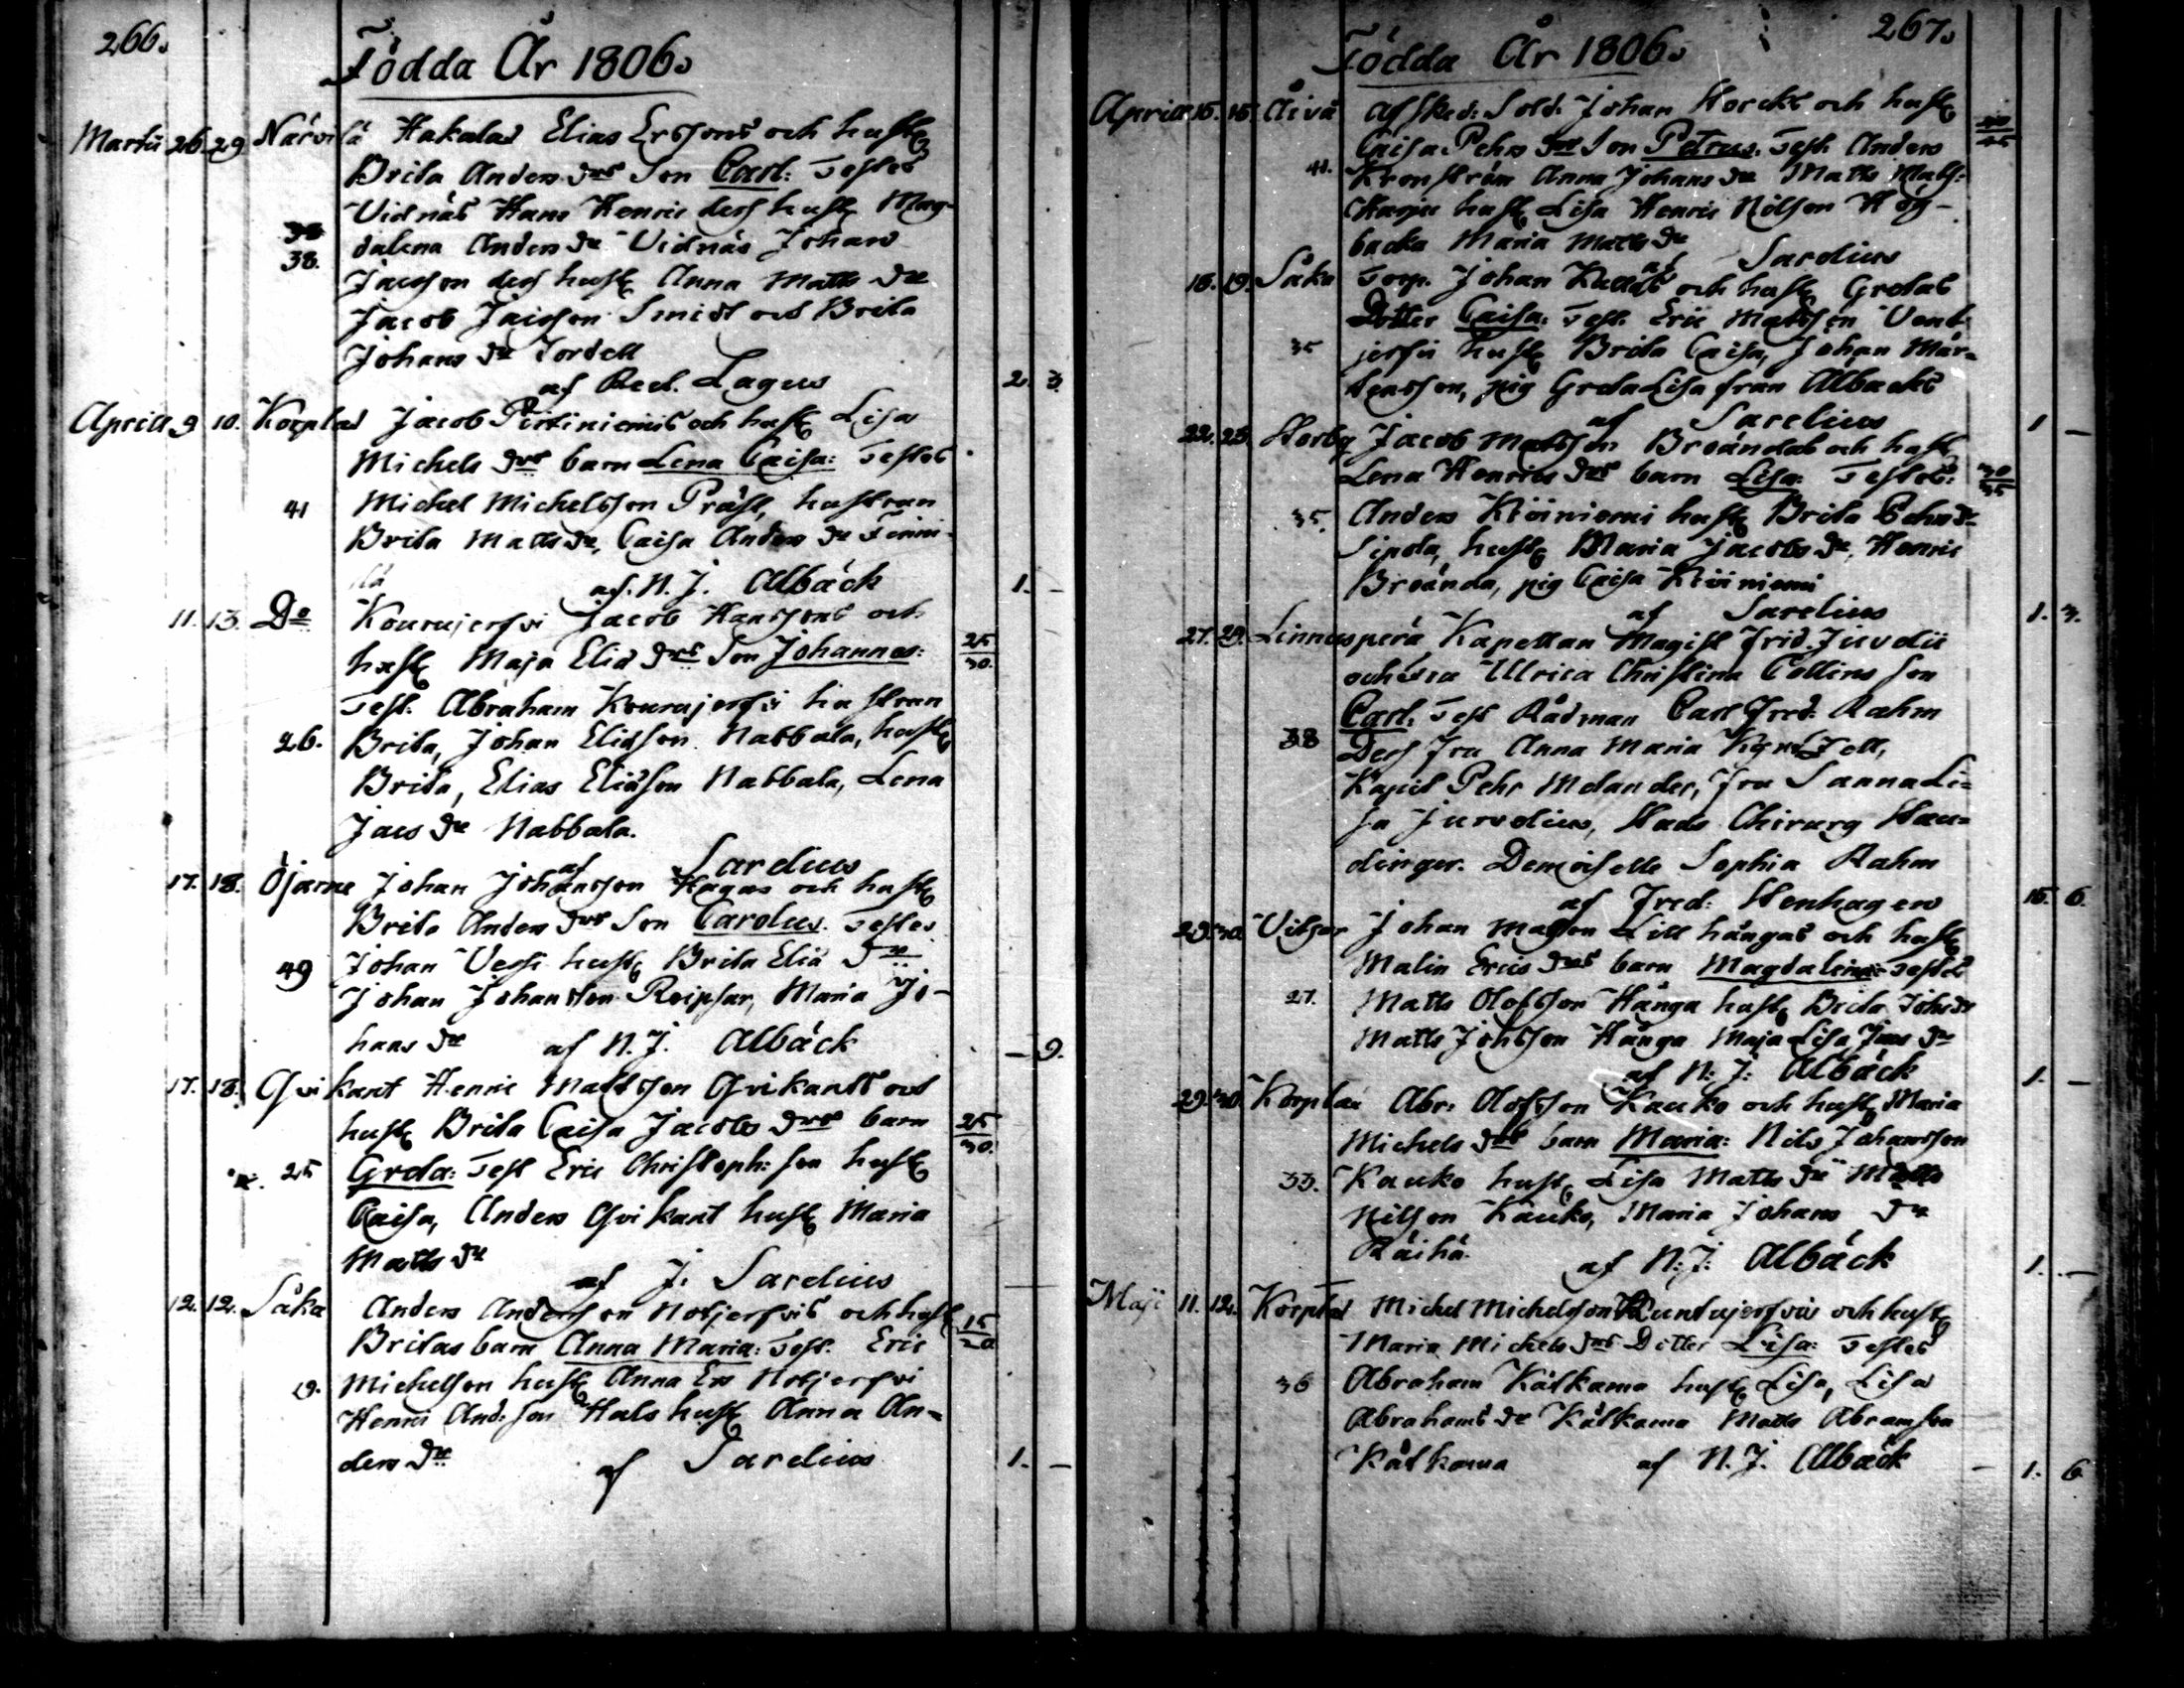 266.
Födda År 1806.
Martii 26. 29 Närvilä Hakalas Elias Erssons och hustr
Brita Anders drs Son Carl: Testes
Vidnäs Hans Henric dess hustr Mag-
38 dalena Anders dr Vidnäs Johan
38. Jacsson dess hustr Anna Matts dr
Jacob Jacsson Smidt och Brita
Johans dr Tordell
af Rect. Lagus 2. 3.
Aprill 9 10. Korplax Jacob Pirtiniemis och hustr Lisa
Michels drs barn Lena Caisa: Testes
41 Michel Michelsson Präst, hustrun
Brita Matts dr, Caisa Anders dr Finni-
lä af N. J. Albäck 1. –
11. 13. Do Kourujerfvi Jacob Hanssons och
hustr Maja Elia drs Son Johannes: 25/30.
Test. Abraham Kourujerfvi hustrun
26. Brita, Johan Eliasson Nabbala, hustr
Brita, Elias Eliasson Nabbala, Lena
Jacs dr Nabbala.
af Sarelius
17. 18. Öjarne Johan Johansson Hagas och hustr
Brita Anders drs Son Carolus. Testes
49 Johan Vessi hustr Brita Elia dr
Johan Johansson Reipsar, Maria Jo-
hans dr af N. J. Albäck – 9.
17. 18. Qvikant Henric Mattsson Qvikants och
hustr Brita Caisa Jacobs drs barn 25/30.
25 Greta: Test Eric Christoph: son hustr
Caisa, Anders Qvikant hustr Maria
Matts dr
af J. Sarelius
12. 12. Såka Anders Andersson Notjerfvis och hustr 15/20
Britas barn Anna Maria: Test. Eric
19. Michelsson hustr Anna Ers Notjerfvi
Henric And: son Hals hustr Anna An-
ders dr af Sarelius 1. –
267.
Födda År 1806.
Aprill 15. 16. Åivå Afsked: Sold. Johan Storcks och hustr
Caisa Pehrs drs Son Petrus. Test Anders
41. Kronström Anna Johans dr Matts Matts:
Harju hustr Lisa Henric Nilsson Hög-
backa Maria Matts dr
af Sarelius
18. 19. Såka Torp. Johan och hustr Gretas
Dotter Caisa: Test. Eric Mattsson Vent-
35 jerfvi hustr Brita Caisa, Johan Mår-
tensson, pig Greta Lisa från Albacks
af Sarelius 1 –
22. 23. Storby Jacob Mattsson Breändas och hustr
Lena Henrics drs barn Lisa: Testes: 30/35
35. Anders Kiviniemi hustr Brita Pehrs dr
Sipola, hustr Maria Jacobs dr, Henric
Breända, pig Caisa Kiviniemi
af Sarelius 1. 3.
27. 29. Linnusperä Kapellan Magist Frid. Juvelii
och fru Ulrica Christina Collins son
Carl: Test Rådman Carl Fred: Rahm
38 Dess fru Anna Maria Kyntzell,
Kapit Pehr Melander, fru Sanna Li-
sa Juvelius, Stads Chirurg Hau-
dinger. Demoiselle Sophia Rahm
af Fred: Stenhagen 16. 6.
29. 30. Vitsar Johan Matsson Lill hångas och hustr
Malin Erics drs barn Magdalena Testes
27. Matts Olofsson Hånga hustr Brita Johs dr
Matts Johsson Hånga Maja Lisa Jacs dr
af N: J: Albäck 1. –
29. 30. Korplax Abr: Olofsson Kauko och hustr Maria
Michels drs barn Maria: Nils Johansson
33. Kauko hustr Lisa Matts dr Matts
Nilsson Kauko, Maria Johans dr
Räihä. af N: J: Albäck 1. –
Maji 11. 12. Korplax Michel Michelsson Kuntujerfvis och hustr
Maria Michels drs Dotter Lisa: Testes
36 Abraham Kälkama hustr Lisa, Lisa
Abrahams dr Kälkama Matts Abramsson
Kälkama af N. J. Albäck 1. 6